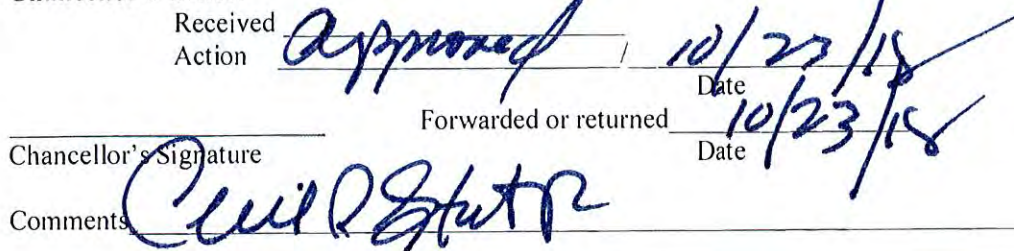 Received
Action Approved / 10/23/18
Date
Forwarded or returned 10/23/18
Chancellor's Signature Date
Comments